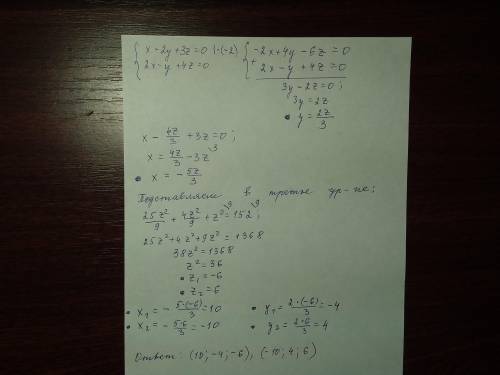 { x - 2y + 3z = 0 | · (-2) { -2x + 4y - 6z = 0
2x - y + 4z = 0 + 2x - y + 4z = 0
3y - 2z = 0;
3y = 2z
• y = 2z/3
x - 4z/3 + 3z = 0;
x = 4z/3 - 3z
• x = - 5z/3
Подставляем в третье ур-ие:
25z²/9 + 4z²/9 + z² = 152;
25z² + 4z² + 9z² = 1368
38z² = 1368
z² = 36
• z₁ = -6
• z₂ = 6
• x₁ = - 5·(-6)/3 = 10 • y₁ = 2·(-6)/3 = -4
• x₂ = - 5·6/3 = -10 • y₂ = 2·6/3 = 4
Ответ: (10; -4; -6), (-10; 4; 6)